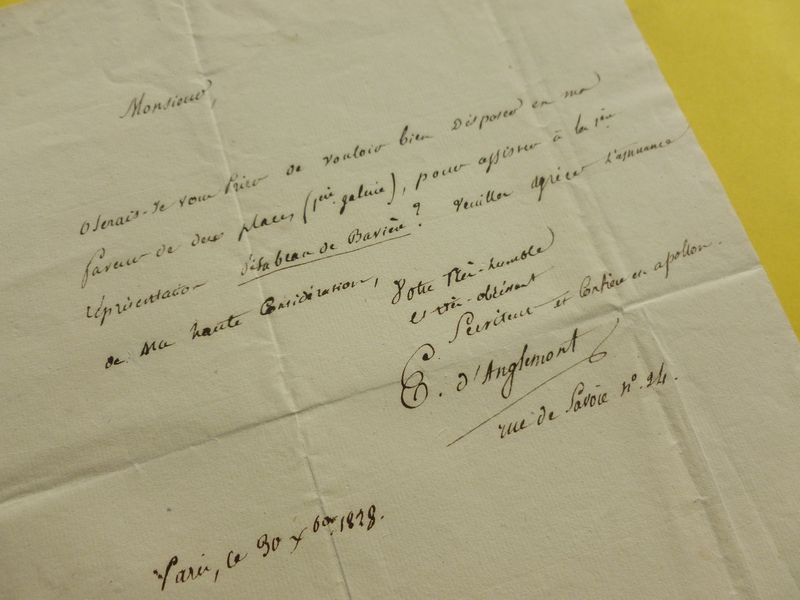 Monsieur,
Oserais-je vous Prier de vouloir bien Disposer en ma
faveur de deux places (1ère galerie), pour assister à la 1ère
réprésentation d'isabeau de Bavière ? Veuillez agréer l'assurance
de ma haute Considération,
Votre Très-humble
et très-obéissant
Serviteur et Confrère en apollon.
E. d'Anglemont
rue de Savoie n°. 24.
Paris, ce 30 Xbre. 1828.